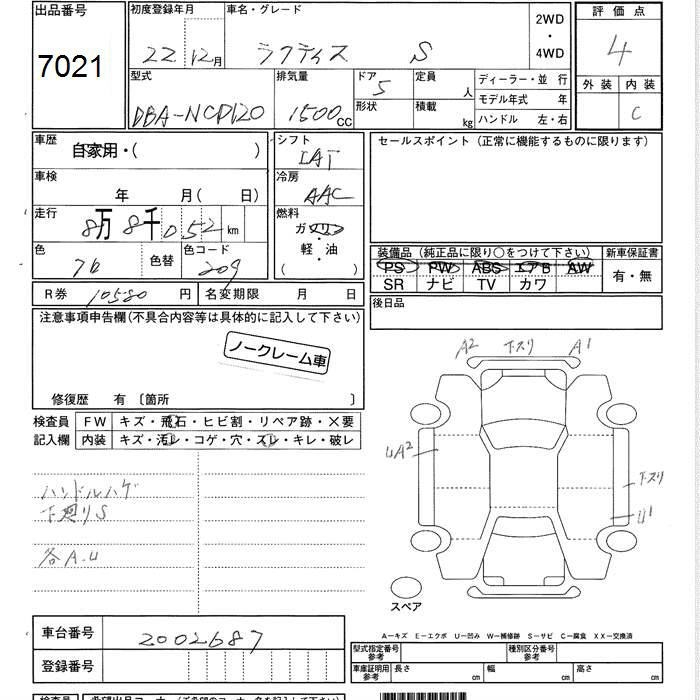 出品番号 初度登録年月 車名・グレード 2WD 評価点
7021 22 12月 ラクティス S ・ 4
4WD 外装 内装
型式 排気量 ドア 定員 ディーラー・並 行 C
DBA-NCP120 1500CC 5 人 モデル年式 年
形状 積載 kg ハンドル 左・右
車歴 シフト セールスポイント（正常に機能するものに限ります）
自家用・( ) IAT
車検 冷房
年 月(日) AAC
走行 燃料
8万 8千052km ガソリン
色 色替 色コード 軽・油 装備品（純正品に限り○をつけて下さい） 新車保証書
209 ( ) PS PW ABS エアB AW 有・無
SR ナビ TV カワ
R券 10580円 名変期限 月 日 後日品
注意事項申告欄(不具合内容等は具体的に記入して下さい)
ノークレーム車 A2 下スリ A1
修復歴 有 〔箇所 〕
検査員 FW キズ・飛石・ヒビ割・リペア跡・×要
記入欄 内装 キズ・汚レ・コゲ・穴・スレ・キレ・破レ
UA2
ハンドルハゲ 下スリ
下廻りS U1
各A.U
スペア
車台番号 2002687 A－キズ E－エクボ U－凹み W－補修跡 S－サビ C－腐食 XX－交換済
登録番号 型式指定番号 参考 種別区分番号 参考
車庫証明用 参考 長さ cm 幅 cm 高さ cm